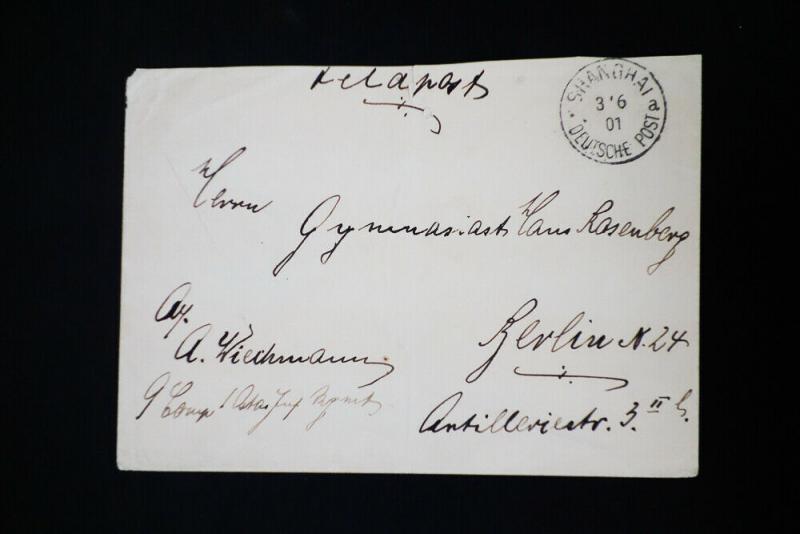 Feldpost
SHANGHAI a
3/6
01
DEUTSCHE POST
Herrn
Gymnasiast Hans Rosenberg
Berlin N. 24
Artilleriestr. 3. II
A. Wiechmann
9 Comp 1 Ostas Inf Regmt